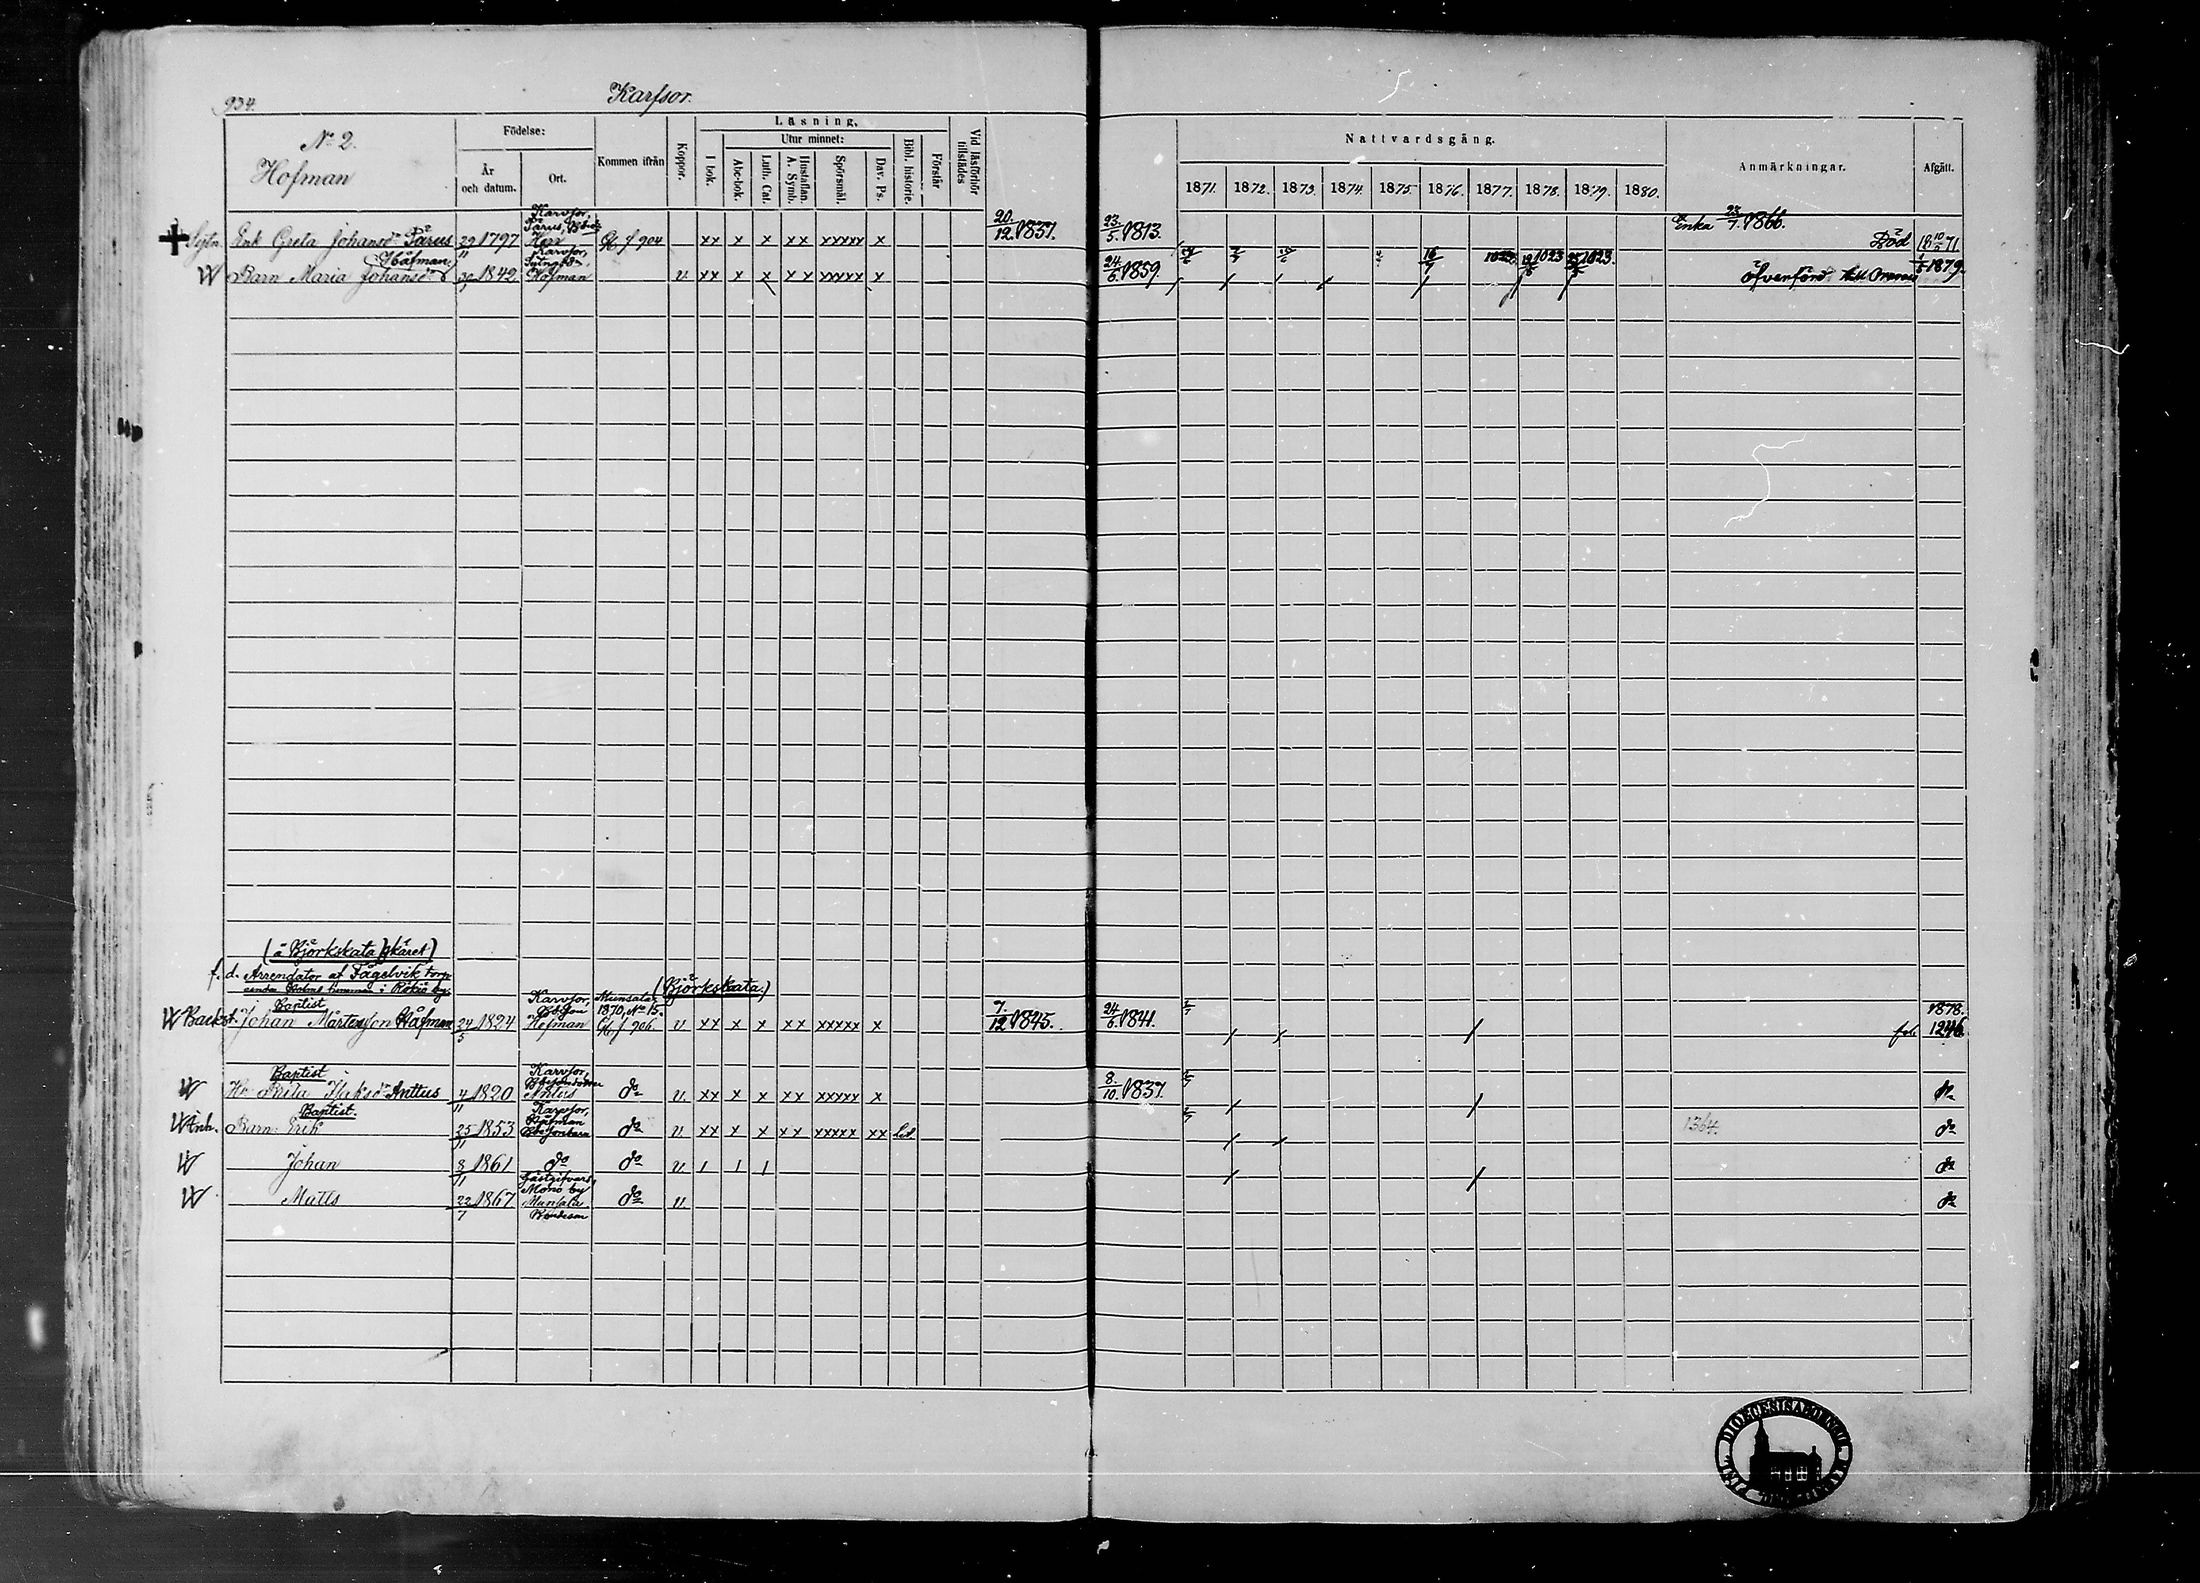 934.
Karfsor.
N:o 2.
Hofman
Födelse:
År och datum.
Ort.
Kommen ifrån
Koppor.
Läsning.
I bok.
Utur minnet:
Abc-bok.
Luth. Cat.
Hustaflan. A. Symb.
Spörsmål.
Dav. Ps.
Bibl. historie.
Förstår
Vid läsförhör tillstädes
Nattvardsgång.
1871. 1872. 1873. 1874. 1875. 1876. 1877. 1878. 1879. 1880.
Anmärkningar.
Afgått.
Enk Greta Johansd:r Pärus 29/11 1797 Gb f 904 xx x x xx xxxxx x 20/12 1857. 23/5 1813. Enka 23/7 1866. Död 18 10/5 71.
Håfman
Barn Maria Johansd:r 1842 Hofman v xx x x xx xxxxx x 24/6 1859. 1023 1023. öfverförd till 1879.
(å Björkskata skäret)
f. d. Arrendator af Fågelvik torp
(Björkskata.)
Baptist
Karvsor, Munsala, 1870, No 15.
Backst. Johan Mårtensson Håfman 24/5 1824 Hofman Gb f 906. v xx x x xx xxxxx x 7/12 1845. 24/6 1841. 1878. fol. 1246.
Baptist
Karvsor,
Hu Brita Isaksd:r Anttus 4/11 1820 Anters d:o v xx x x xx xxxxx x 8/10 1837. d:o
Baptist.
Karvsor,
Inh. Barn: Erik 25/11 1853 Hofman d:o v xx x x xx xxxxx xx 1364. d:o
Johan 8/11 1861 d:o d:o v d:o
Gästgifvars,
Monö by
Matts 22/7 1867 Munsala d:o v. d:o